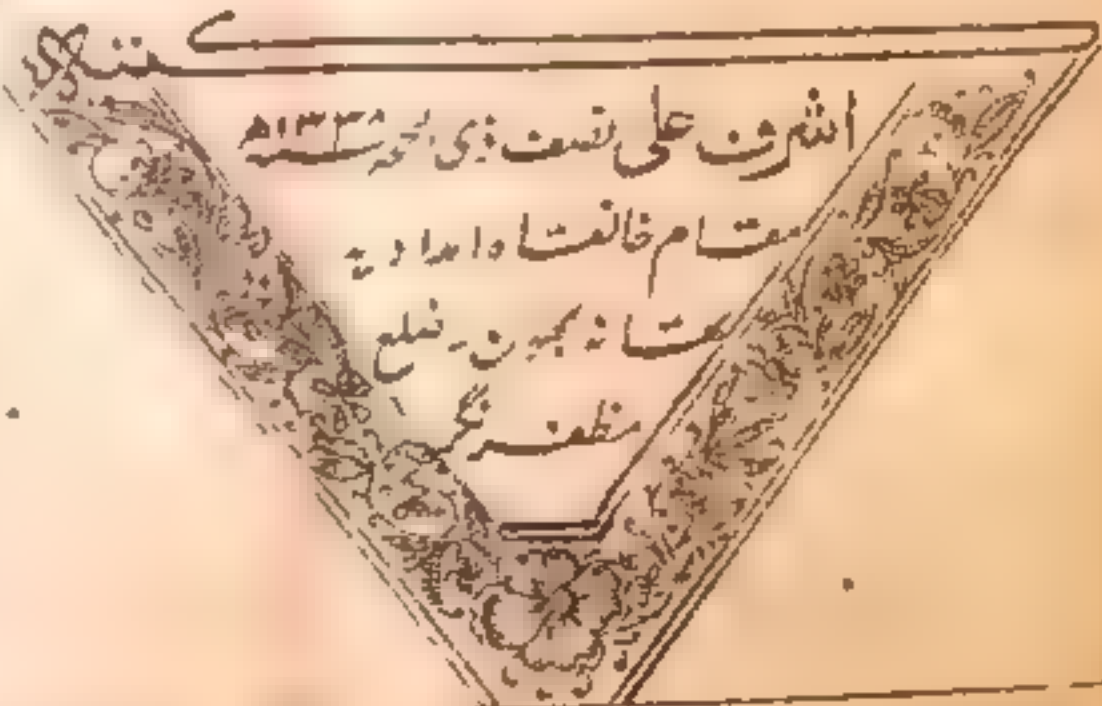 اشرف علی نصف ذی الحجہ ۱۳۳۰ھ
مقام خانقاہ امدادیہ
تھانہ بھون ضلع
مظفر نگر